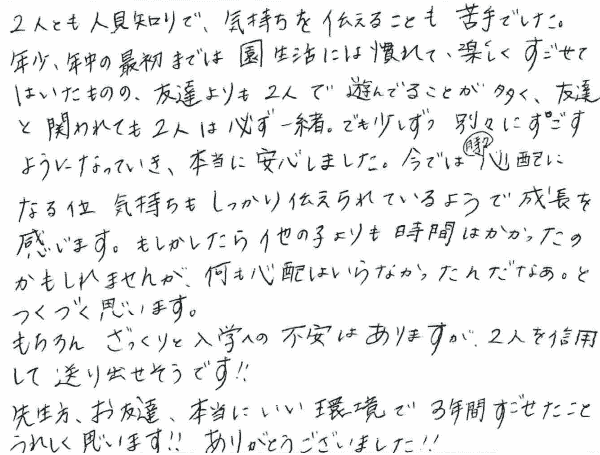 2人とも人見知りで、気持ちを伝えることも苦手でした。
年少、年中の最初までは園生活には慣れて、楽しくすごせて
はいたものの、友達よりも2人で遊んでることが多く、友達
と関われても2人は必ず一緒。でも少しずつ別々にすごす
ようになっていき、本当に安心しました。今では時々心配に
なる位気持ちもしっかり伝えられているようで成長を
感じます。もしかしたら他の子よりも時間はかかったの
かもしれませんが、何も心配はいらなかったんだなあ。と
つくづく思います。
もちろんざっくりと入学への不安はありますが、2人を信用
して送り出せそうです!!
先生方、お友達、本当にいい環境で3年間すごせたこと
うれしく思います!!ありがとうございました!!